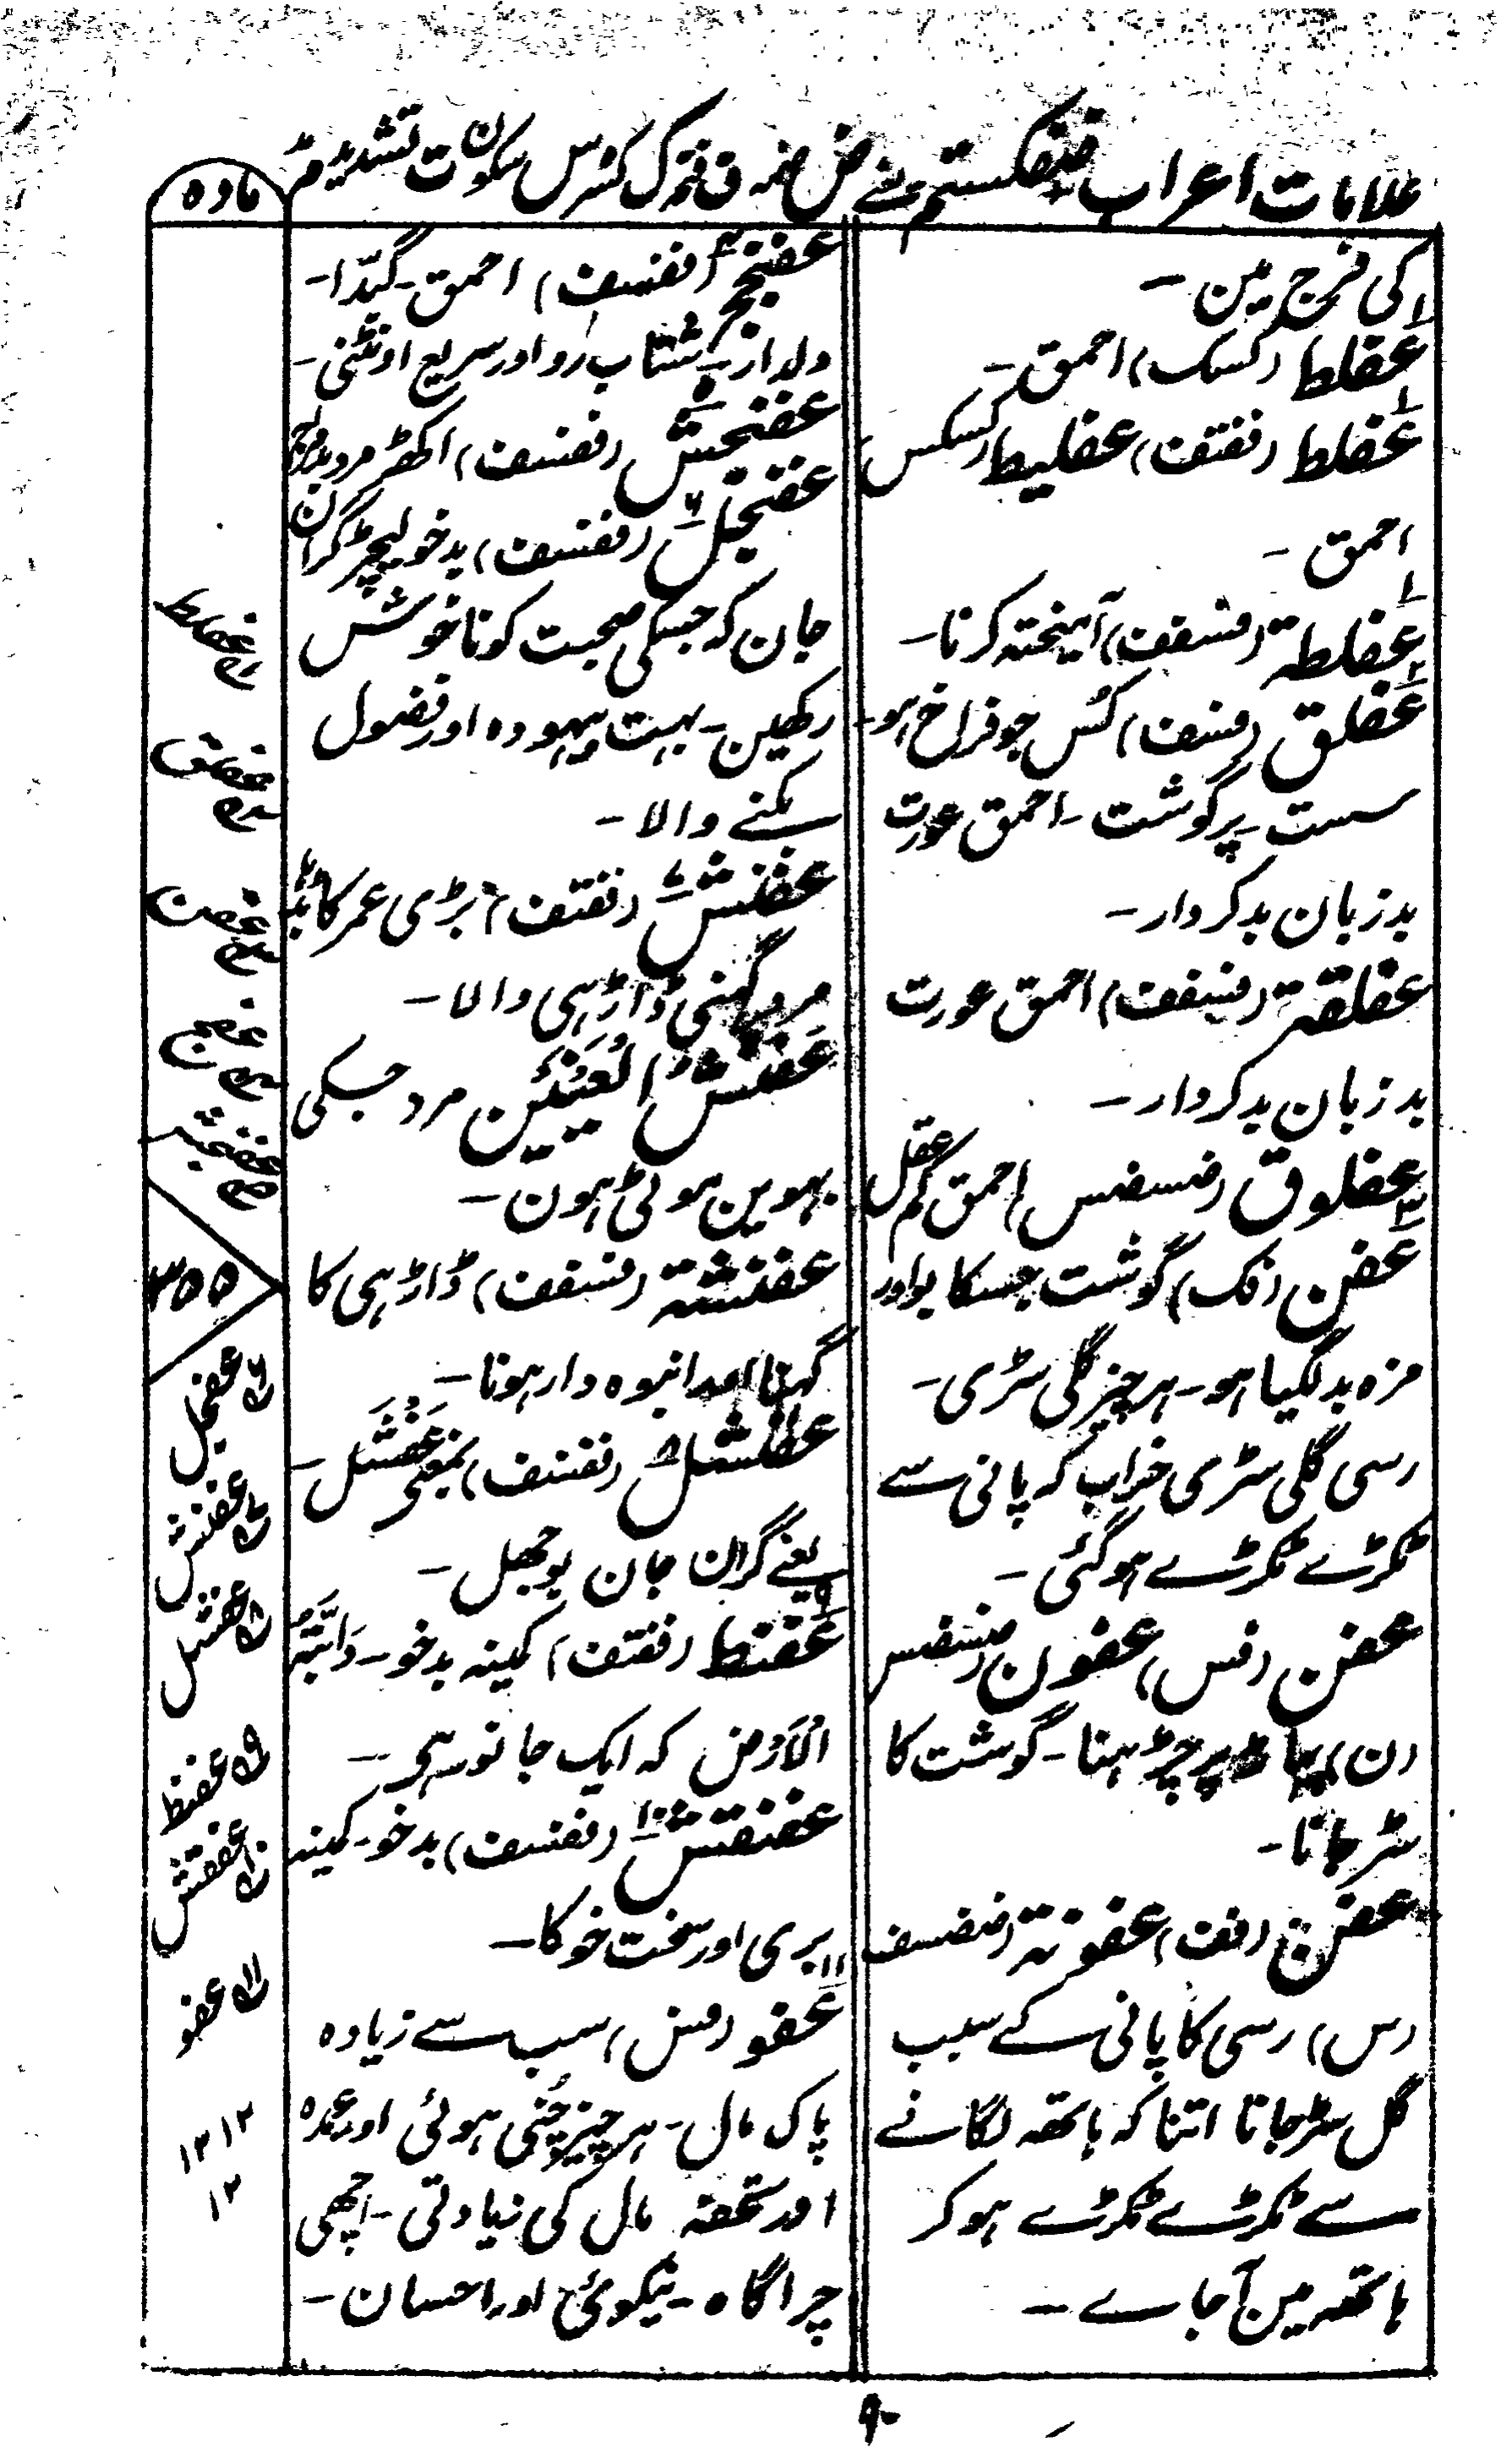 علامات اعراب ضفکستم یعنے ض ضمہ ف فتحہ ک کسر س سکون ت تشدید م مد
مادہ
کی فرج مین ۔
عفلط (کسک) احمق ۔
عفلط (ففتف) عفلیط (کسکس)
احمق ۔
عفلطة (فسففف) آمیختہ کرنا ۔
عفلق (فسف) کس جو فراخ ہو ۔
سست ۔ پر گوشت ۔ احمق عورت
بد زبان بد کردار ۔
عفلقة (فسففف) احمق عورت
بد زبان بد کردار ۔
عفلوق (ضسضس) احمق کم عقل
عفن (فک) گوشت جسکا بو اور
مزہ بدلگیا ہو ۔ ہر چیز گلی سڑی ۔
رسی گلی سڑی خراب کہ پانی سے
ٹکڑے ٹکڑے ہوگئی ۔
عفن (فس) عفون (ضضس)
(ن) پہاڑ پر چڑہنا ۔ گوشت کا
سڑ جانا ۔
عفن (فف) عفونة (ضضسف)
(س) رسی کا پانی کے سبب
گل سڑ جانا اتنا کہ ہاتھہ لگانے
سے ٹکڑے ٹکڑے ہو کر
ہاتھہ مین آجاے ۔
عفنجج (ففسف) احمق ۔ گبدّا ۔
ولدار ۔ شتاب رو اور سریع اونٹنی ۔
عفنجش (ففسف) اکھڑ مرد
عفنجل (ففسف) بدخو لیچڑ گران
جان کہ جسکی صحبت کو ناخوش
رکھین ۔ بہت بیہودہ اور فضول
بکنے والا ۔
عفنش (ففتف) بڑی عمر کا بڈہا
مرد گہنی ڈاڑہی والا ۔
عَفَنَّشُ الْعَیْنَیْنِ مرد جسکی
بہوین موٹی ہون ۔
عفنشة (فسففف) ڈاڑہی کا
گہنا اور انبوہ دار ہونا ۔
عفنشل (ففسف) بمعنے عَفَشَّل ۔
یعنے گران جان بوجھل ۔
عفنط (ففتف) کمینہ بدخو ۔ دَابَّةُ
الْاَرْض کہ ایک جانور ہے ۔
عفنقش (ففسف) بدخو ۔ کمینہ
بری اور سخت خو کا ۔
عفو (فس) سب سے زیادہ
پاک مال ۔ ہر چیز چُنی ہوئی اور عمدہ
اور تحفہ مال کی زیادتی ۔ اچھی
چراگاہ ۔ نیکوئی اور احسان ۔
عفلط
عفلق
عفن
عفنج
عفنجش
۳۵۵
۶ عفنجل
۷ عفنش
۸ عفنشل
۹ عفنط
۱۰ عفنقش
۱۱ عفو
۱۲ ۱۲
۱۲